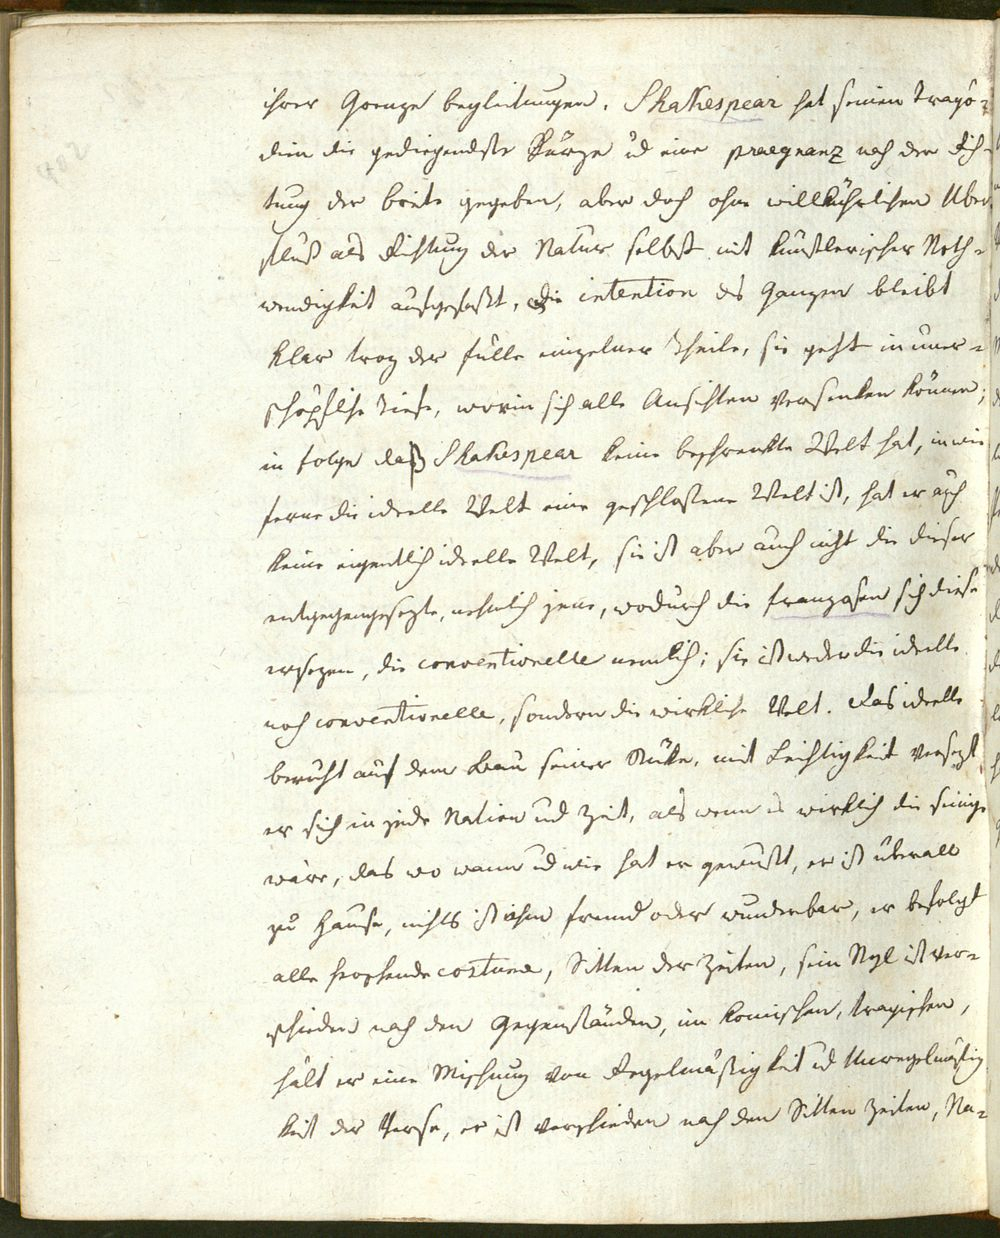 ihrer Grenze begleitungen. Shakespear hat seinen Tragö-
dien die gediegendste Kürze ud eine praegnanz nach der Rich-
tung der breite gegeben, aber doch ohne willkührlichen Uber
fluß als Richtung der Natur selbst mit künstlerischer Noth-
wendigkeit aufgefaßt, die intention des Ganzen bleibt
klar troz der fülle einzelner Theile, sie geht in uner-
schöpfliche Tiefe, worin sich alle Ansichten versenken können;
in folge daß Shakespear keine beschrenkte Welt hat, in wie
ferne die ideelle Welt eine geschloßene Welt ist, hat er auch
keine eigentlich ideelle Welt, sie ist aber auch nicht die dieser
entgegengesezte, nehmlich jene, wodurch die franzosen sich diese
ersezen, die conventionelle nemlich; sie ist weder die ideelle
noch conventionelle, sondern die wirkliche Welt. Das ideelle
beruht auf dem Bau seiner Stüke, mit Leichtigkeit versezt
er sich in jede Nation und Zeit, als wenn es wirklich die seinige
wäre, das wo wann ud wie hat er gewußt, er ist überall
zu Hause, nichts ist ihm fremd oder wunderbar, er befolgt
alle costume, Sitten der Zeiten, sein Styl ist ver-
schieden nach den Gegenständen, im komischen, tragischen,
hält er eine Mischung von Regelmäßigkeit ud Unregelmäßig
keit der Verse, er ist verschieden nach den Sitten Zeiten, Na-